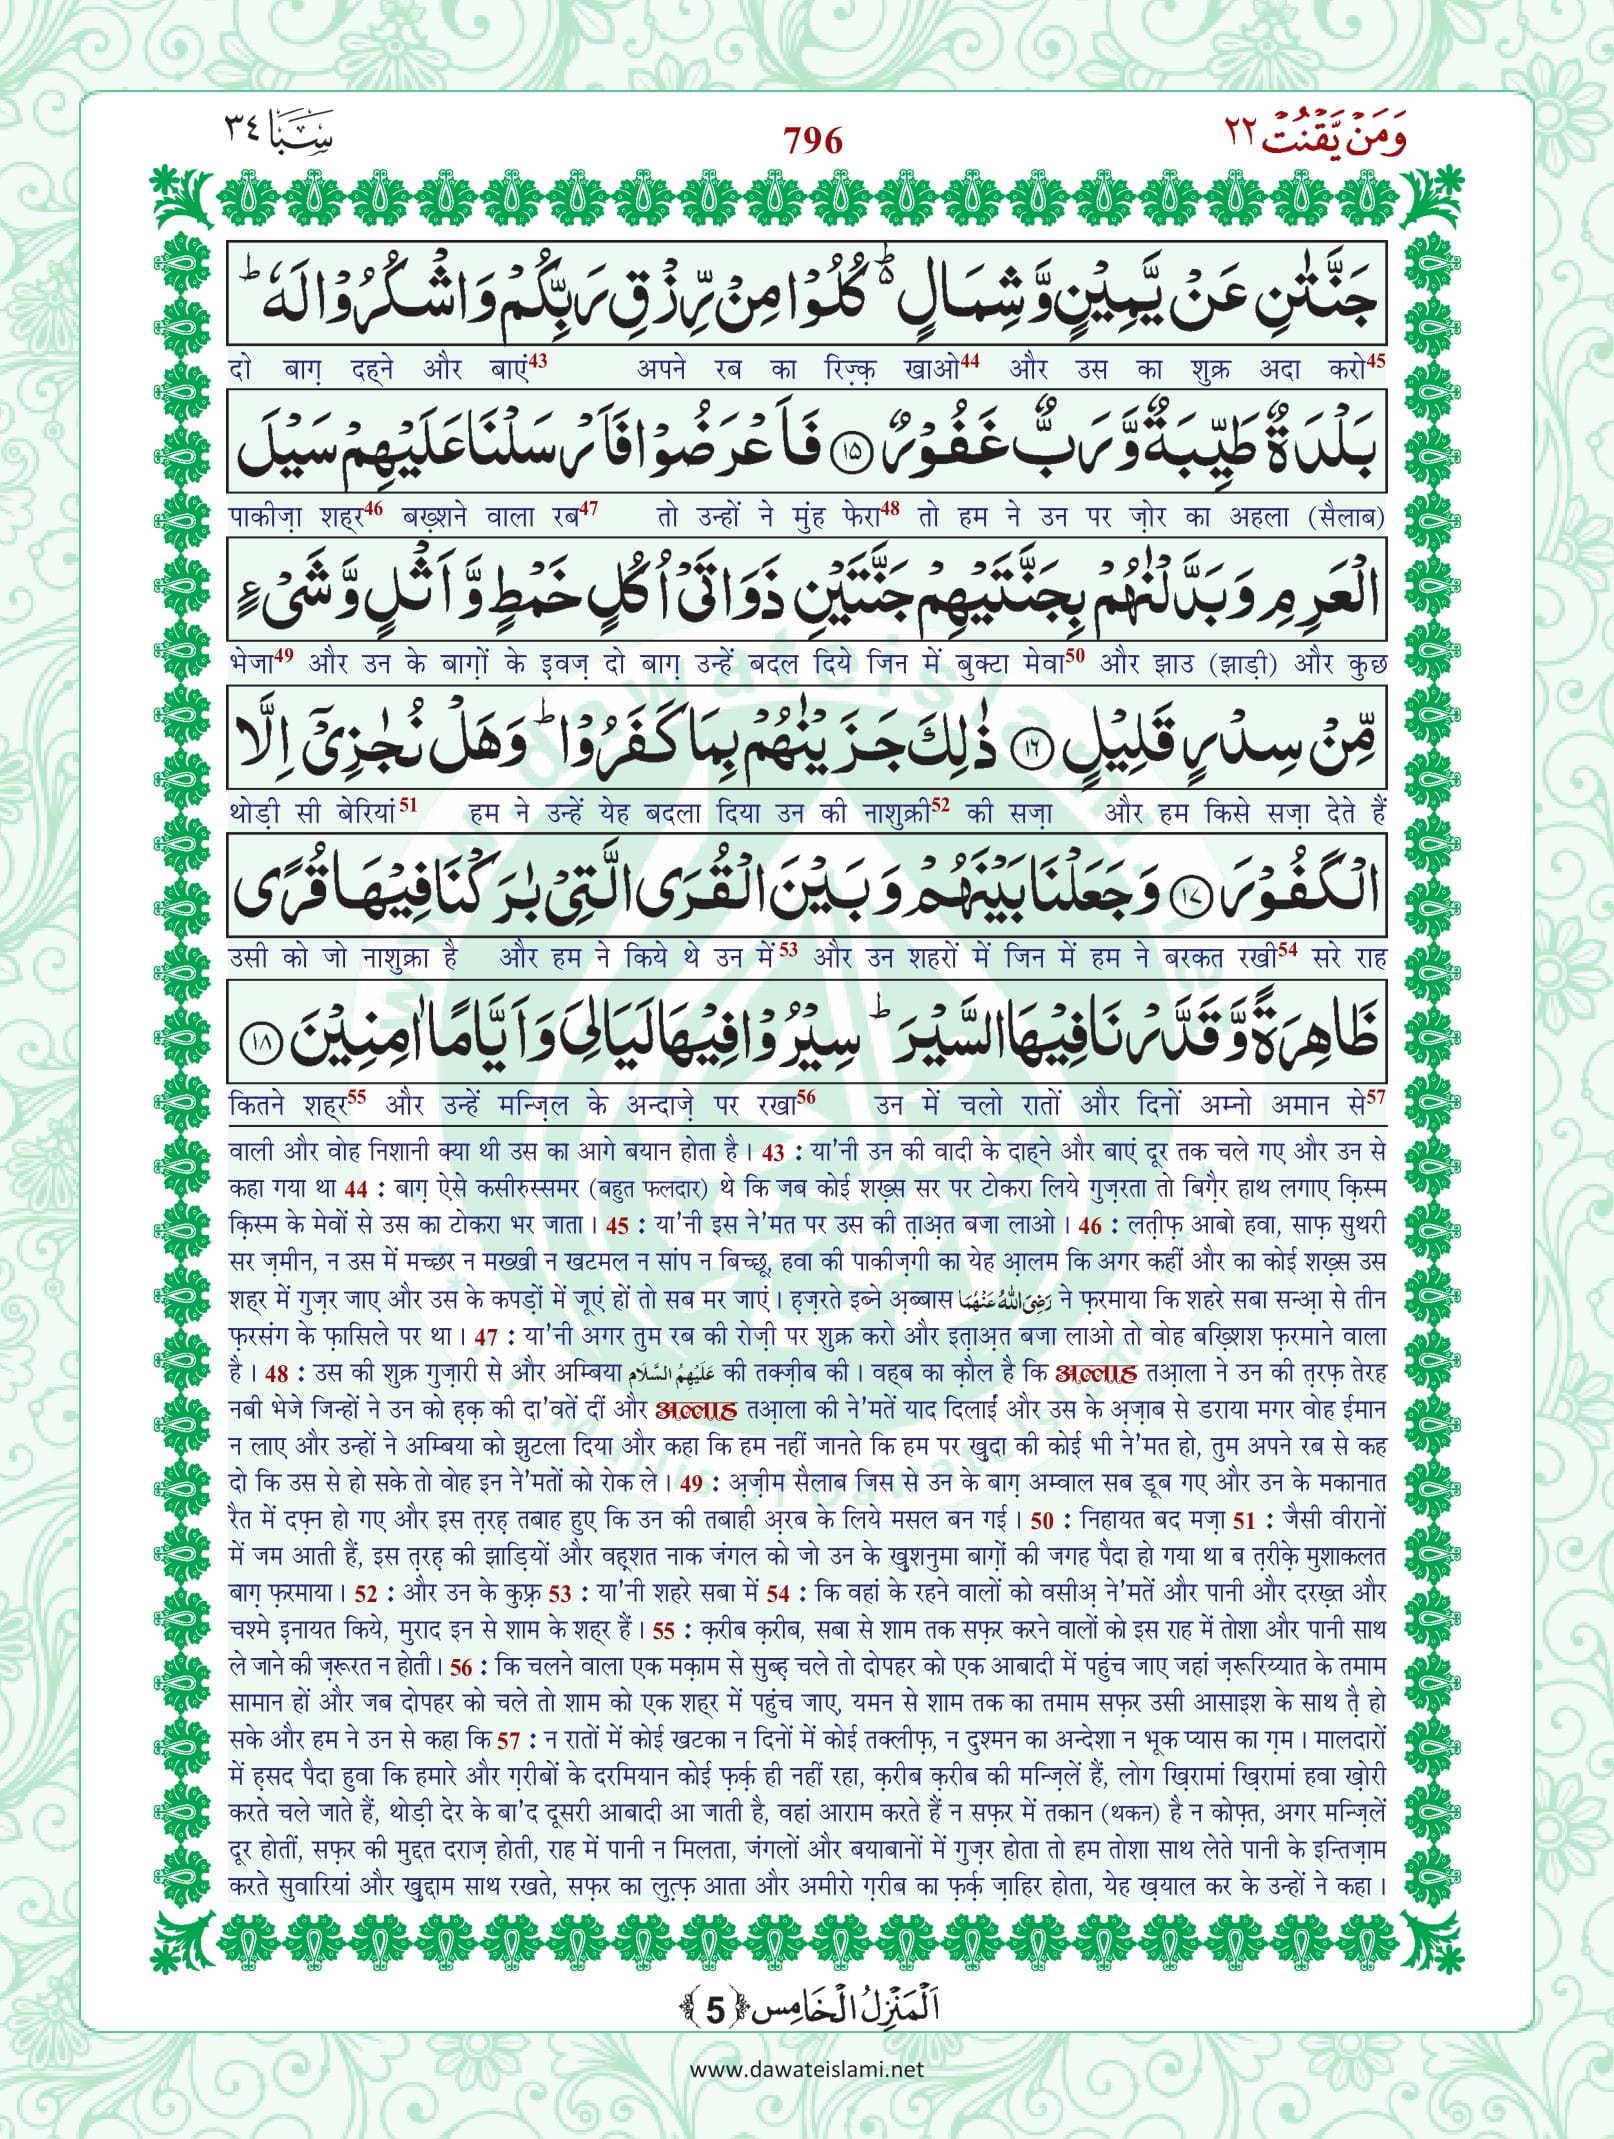 وَمَنۡ يَّقۡنُتۡ ٢٢ 796 سَبَا ٣٤
جَنَّتٰنِ عَنۡ يَّمِيۡنٍ وَّشِمَالٍ ۬ؕ كُلُوۡا مِنۡ رِّزۡقِ رَبِّكُمۡ وَاشۡكُرُوۡا لَهٗ ؕ
दो बाग़ दहने और बाएं43 अपने रब का रिज़्क़ खाओ44 और उस का शुक्र अदा करो45
بَلۡدَةٌ طَيِّبَةٌ وَّرَبٌّ غَفُوۡرٌ ﴿١٥﴾ فَاَعۡرَضُوۡا فَاَرۡسَلۡنَا عَلَيۡهِمۡ سَيۡلَ
पाकीज़ा शहर46 बख़्शने वाला रब47 तो उन्हों ने मुंह फेरा48 तो हम ने उन पर ज़ोर का अहला (सैलाब)
الۡعَرِمِ وَبَدَّلۡنٰهُمۡ بِجَنَّتَيۡهِمۡ جَنَّتَيۡنِ ذَوَاتَىۡ اُكُلٍ خَمۡطٍ وَّاَثۡلٍ وَّشَىۡءٍ
भेजा49 और उन के बाग़ों के इवज़ दो बाग़ उन्हें बदल दिये जिन में बुक्टा मेवा50 और झाउ (झाड़ी) और कुछ
مِّنۡ سِدۡرٍ قَلِيۡلٍ ﴿١٦﴾ ذٰلِكَ جَزَيۡنٰهُمۡ بِمَا كَفَرُوۡا ؕ وَهَلۡ نُجٰزِىۡۤ اِلَّا
थोड़ी सी बेरियां51 हम ने उन्हें येह बदला दिया उन की नाशुक्री52 की सज़ा और हम किसे सज़ा देते हैं
الۡكَفُوۡرَ ﴿١٧﴾ وَجَعَلۡنَا بَيۡنَهُمۡ وَبَيۡنَ الۡقُرَى الَّتِىۡ بٰرَكۡنَا فِيۡهَا قُرًى
उसी को जो नाशुक्रा है और हम ने किये थे उन में53 और उन शहरों में जिन में हम ने बरकत रखी54 सरे राह
ظَاهِرَةً وَّقَدَّرۡنَا فِيۡهَا السَّيۡرَ ؕ سِيۡرُوۡا فِيۡهَا لَيَالِىَ وَاَيَّامًا اٰمِنِيۡنَ ﴿١٨﴾
कितने शहर55 और उन्हें मन्ज़िल के अन्दाज़े पर रखा56 उन में चलो रातों और दिनों अम्नो अमान से57
वाली और वोह निशानी क्या थी उस का आगे बयान होता है। 43 : या'नी उन की वादी के दाहने और बाएं दूर तक चले गए और उन से
कहा गया था 44 : बाग़ ऐसे कसीरुस्समर (बहुत फलदार) थे कि जब कोई शख़्स सर पर टोकरा लिये गुज़रता तो बिग़ैर हाथ लगाए क़िस्म
क़िस्म के मेवों से उस का टोकरा भर जाता। 45 : या'नी इस ने'मत पर उस की त़ाअ़त बजा लाओ। 46 : लत़ीफ़ आबो हवा, साफ़ सुथरी
सर ज़मीन, न उस में मच्छर न मख्खी न खटमल न सांप न बिच्छू, हवा की पाकीज़गी का येह आ़लम कि अगर कहीं और का कोई शख़्स उस
शहर में गुज़र जाए और उस के कपड़ों में जूएं हों तो सब मर जाएं। हज़रते इब्ने अ़ब्बास رَضِىَ اللهُ عَنۡهُمَا ने फ़रमाया कि शहरे सबा सन्आ़ से तीन
फ़रसंग के फ़ासिले पर था। 47 : या'नी अगर तुम रब की रोज़ी पर शुक्र करो और इत़ाअ़त बजा लाओ तो वोह बख़्शिश फ़रमाने वाला
है। 48 : उस की शुक्र गुज़ारी से और अम्बिया عَلَيۡهِمُ السَّلَام की तक्ज़ीब की। वह्ब का क़ौल है कि अल्लाह तआ़ला ने उन की त़रफ़ तेरह
नबी भेजे जिन्हों ने उन को ह़क़ की दा'वतें दीं और अल्लाह तआ़ला की ने'मतें याद दिलाईं और उस के अ़ज़ाब से डराया मगर वोह ईमान
न लाए और उन्हों ने अम्बिया को झुटला दिया और कहा कि हम नहीं जानते कि हम पर ख़ुदा की कोई भी ने'मत हो, तुम अपने रब से कह
दो कि उस से हो सके तो वोह इन ने'मतों को रोक ले। 49 : अ़ज़ीम सैलाब जिस से उन के बाग़ अम्वाल सब डूब गए और उन के मकानात
रैत में दफ़्न हो गए और इस त़रह़ तबाह हुए कि उन की तबाही अ़रब के लिये मसल बन गई। 50 : निहायत बद मज़ा 51 : जैसी वीरानों
में जम आती हैं, इस त़रह़ की झाड़ियों और वह़्शत नाक जंगल को जो उन के ख़ुशनुमा बाग़ों की जगह पैदा हो गया था ब त़रीक़े मुशाकलत
बाग़ फ़रमाया। 52 : और उन के कुफ़्र 53 : या'नी शहरे सबा में 54 : कि वहां के रहने वालों को वसीअ़ ने'मतें और पानी और दरख़्त और
चश्मे इनायत किये, मुराद इन से शाम के शहर हैं। 55 : क़रीब क़रीब, सबा से शाम तक सफ़र करने वालों को इस राह में तोशा और पानी साथ
ले जाने की ज़रूरत न होती। 56 : कि चलने वाला एक मक़ाम से सुब्ह़ चले तो दोपहर को एक आबादी में पहुंच जाए जहां ज़रूरिय्यात के तमाम
सामान हों और जब दोपहर को चले तो शाम को एक शहर में पहुंच जाए, यमन से शाम तक का तमाम सफ़र उसी आसाइश के साथ त़ै हो
सके और हम ने उन से कहा कि 57 : न रातों में कोई खटका न दिनों में कोई तक्लीफ़, न दुश्मन का अन्देशा न भूक प्यास का ग़म। मालदारों
में ह़सद पैदा हुवा कि हमारे और ग़रीबों के दरमियान कोई फ़र्क़ ही नहीं रहा, क़रीब क़रीब की मन्ज़िलें हैं, लोग ख़िरामां ख़िरामां हवा ख़ोरी
करते चले जाते हैं, थोड़ी देर के बा'द दूसरी आबादी आ जाती है, वहां आराम करते हैं न सफ़र में तकान (थकन) है न कोफ़्त, अगर मन्ज़िलें
दूर होतीं, सफ़र की मुद्दत दराज़ होती, राह में पानी न मिलता, जंगलों और बयाबानों में गुज़र होता तो हम तोशा साथ लेते पानी के इन्तिज़ाम
करते सुवारियां और ख़ुद्दाम साथ रखते, सफ़र का लुत्फ़ आता और अमीरो ग़रीब का फ़र्क़ ज़ाहिर होता, येह ख़याल कर के उन्हों ने कहा।
اَلۡمَنۡزِلُ الۡخَامِس ﴿5﴾
www.dawateislami.net